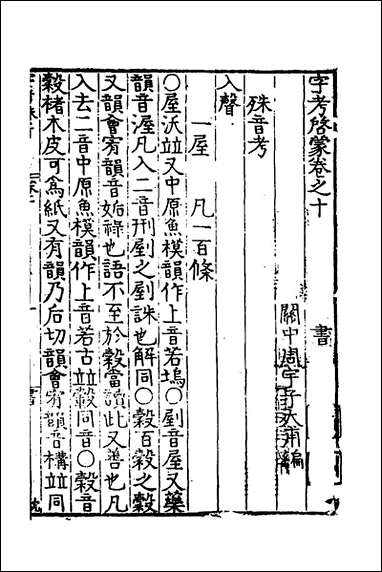 字考啓蒙卷之十
書
關中周宇子大甫編
殊音考
入聲
一屋 凡一百條
○屋沃竝又中原魚模韻作上音若塢○剭音屋又藥
韻音渥凡入二音刑剭之剭誅也解同○穀百穀之穀
又韻會宥韻音姤祿也語不至於穀當讀此又善也凡
入去二音中原魚模韻作上音若古竝轂同音○穀音
榖楮木皮可爲紙又有韻乃后切韻會宥韻音構竝同